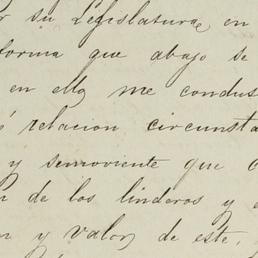 r su Legislatura, en
forma que abajo se
en ella me condus
relacion circunsta
y semoviente que
de los linderos y
y valor de este,